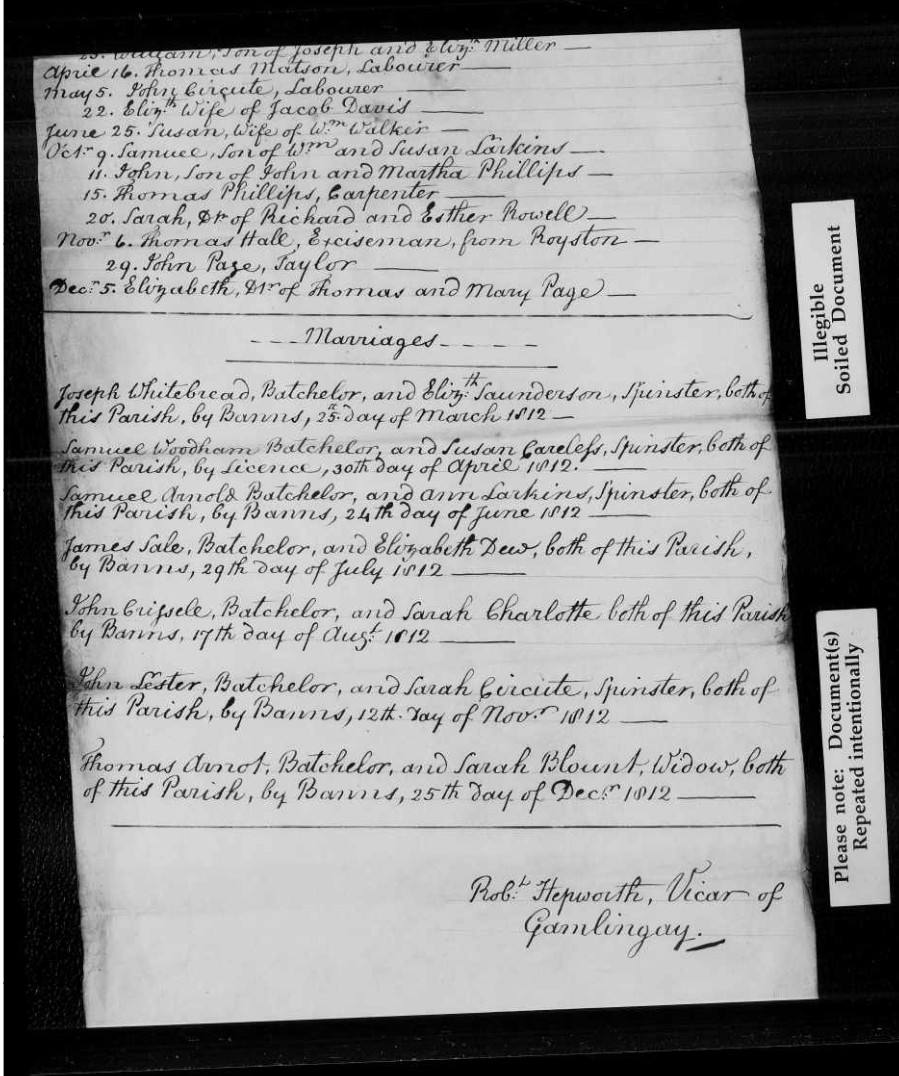 23. William, Son of Joseph and Eliz.th Miller —
April 16. Thomas Matson, Labourer —
May 5. John Circute, Labourer —
22. Eliz.th Wife of Jacob Davis —
June 25. Susan, Wife of W.m Walker —
Oct.r 9. Samuel, Son of W.m and Susan Larkins —
11. John, Son of John and Martha Phillips —
15. Thomas Phillips, Carpenter —
20. Sarah, D.r of Richard and Esther Rowell —
Nov.r 6. Thomas Hall, Exciseman, from Royston —
29. John Page, Taylor —
Dec.r 5. Elizabeth, D.r of Thomas and Mary Page —
--- Marriages ----
Joseph Whitebread, Batchelor, and Eliz.th Saunderson, Spinster, both of
this Parish, by Banns, 25.th day of March 1812 —
Samuel Woodham Batchelor, and Susan Careless, Spinster, both of
this Parish, by Licence, 30th day of April 1812. —
Samuel Arnold Batchelor, and Ann Larkins, Spinster, both of
this Parish, by Banns, 24th day of June 1812 —
James Sale, Batchelor, and Elizabeth Dew, both of this Parish,
by Banns, 29th day of July 1812 —
John Crissele, Batchelor, and Sarah Charlotte both of this Parish
by Banns, 17th day of Aug.t 1812 —
John Lester, Batchelor, and Sarah Circute, Spinster, both of
this Parish, by Banns, 12th. Day of Nov.r 1812 —
Thomas Arnot, Batchelor, and Sarah Blount, Widow, both
of this Parish, by Banns, 25th Day of Dec.r 1812 —
Rob.t Hepworth, Vicar of
Gamlingay.
Illegible
Soiled Document
Please note: Document(s)
Repeated intentionally